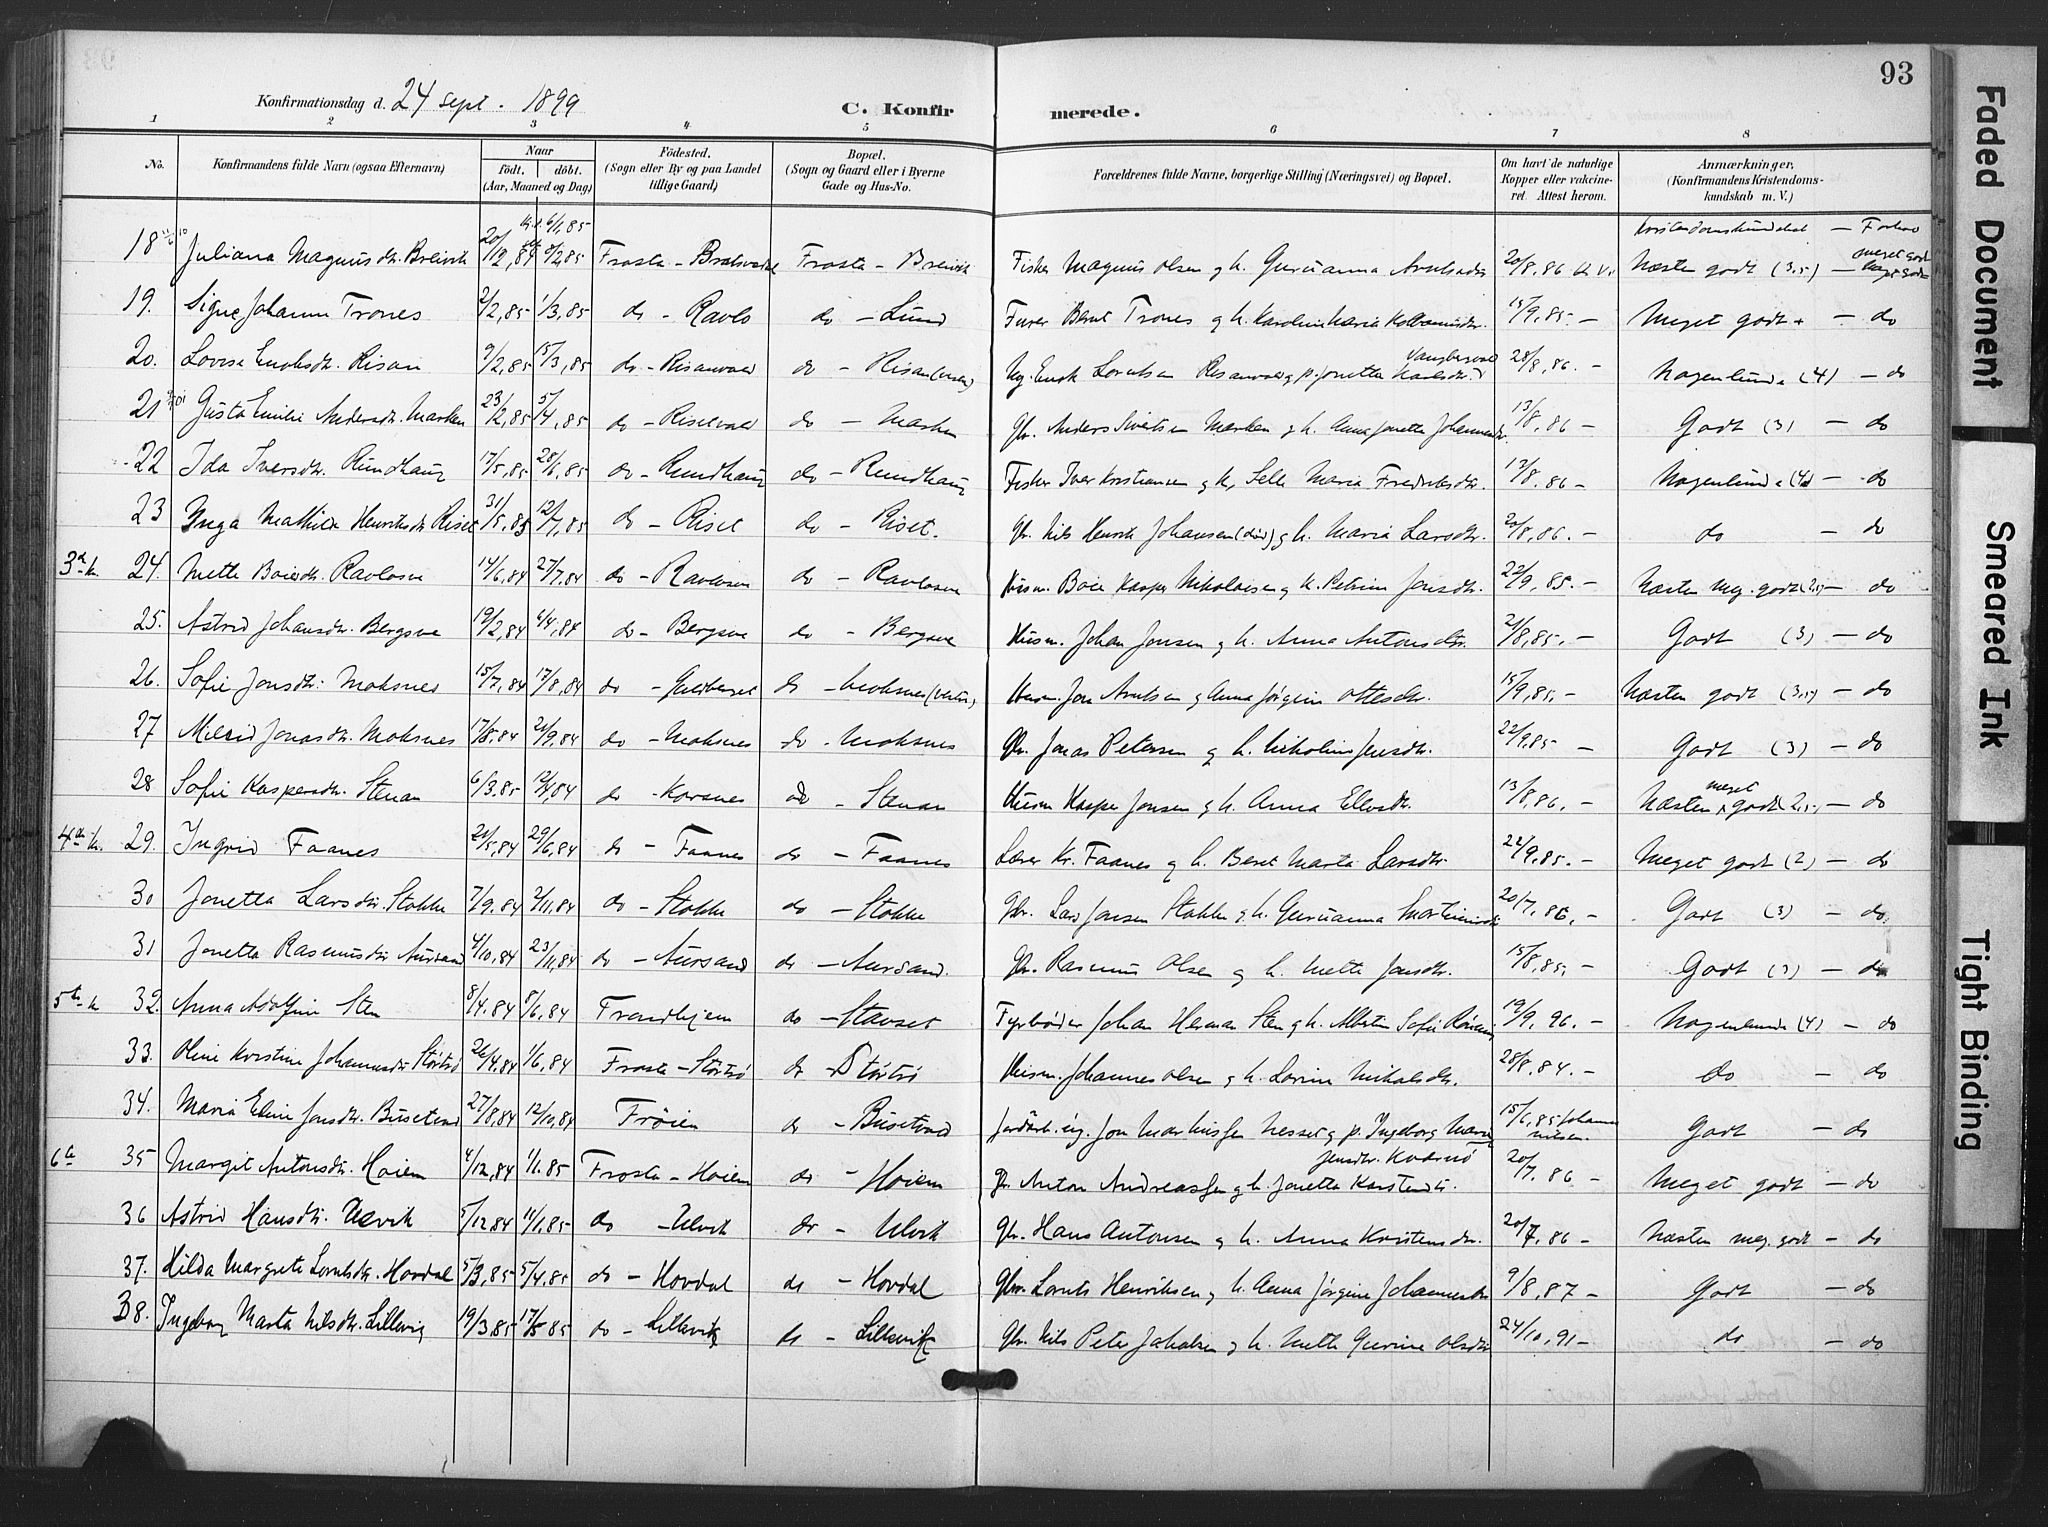 93
Konfirmationsdag d. 24 sept. 1899 C. Konfirmerede.
1 2 3 4 5 6 7 8
No. Konfirmandens fulde Navn (ogsaa Efternavn) Naar født. døbt. (Aar, Maaned og Dag) Fødested. (Sogn eller By og paa Landet tillige Gaard) Bopæl. (Sogn og Gaard eller i Byerne Gade og Hus-No. Forældrenes fulde Navne, borgerlige Stilling (Næringsvei) og Bopæl. Om havt de naturlige Kopper eller vakcineret. Attest herom. Anmærkninger. (Konfirmandens Kristendomskundskab m. V.)
18 Juliana Magnusdtr. Breivik 20/12,84 8/2,85 Frosta - Frosta - Breivik Fisker Magnus Olsen og h. Guruanna 20/8,86 Næsten godt (3,5) - meget godt
19. Signe Johanna Trones 2/2,85 1/3,85 do - Ravlo do - Lund Furer Bernt Trones og h. Karolin Maria 15/9,85.- Meget godt - do
20. Lovise Enoksdtr. Risan 9/2,85 15/3,85 do - Risanvald do - Risan Ug. Enok Lorntsen Risanvald og p. Jonetta Karlsdtr. 28/8,86.- Nogenlunde (4) - do
21 Gusta Emilie Andersdtr. Marken 23/2,85 5/4,85 do - Risetvald do - Marken Gbr. Anders Sivertsen Marken og h. Anna Jonetta Johannesdtr. 13/8,86 - Godt (3) - do
22 Ida Iversdtr. Rundhaug 17/5,85 28/6,85 do - Rundhaug do - Rundhaug Fisker Iver Kristiansen og h. Maria Fredriksdtr. 13/8.86 - Nogenlunde (4) - do
23 Inga Mathilde Henriksdtr. Riset 31/5,85 12/7,85 do - Riset do - Riset. Gbr. Nils Henrik Johansen (död) og h. Maria Larsdtr. 20/8,86.- do - do
3die k. 24. Mette Boiesdtr. Ravlosve 14/6,84 27/7,84 do - Ravlosve do - Ravlosve Husm. Boie Kasper Nikolaisen og h. Petrine Jensdtr. 22/9,85.- Næsten meg. godt (2,5) - do
25. Astrid Johansdtr. Bergsve 19/2,84 4/4,84 do - Bergsve do - Bergsve Husm. Johan Jonsen og h. Anna Antonsdtr. 2/8,85.- Godt (3) - do
26. Sofie Jonsdtr. Moksnes 15/7,84 17/8,84 do - do - Moksnes Husm. Jon Arntsen og Anna Jørgine Ottesdtr. 15/9,85,- Næsten godt (3,5) - do
27 Jonasdtr. Moksnes 17/8,84 21/9,84 do - Moksnes do - Moksnes Gbr. Jonas Petersen og h. Nikoline Jensdtr. 22/9,85 - Godt (3) - do
28 Sofie Kaspersdtr. Stenan 6/3.85 12/4,84 do - Korsnes do - Stenan Husm Kasper Jonsen og h. Anna 13/8,86.- Næsten meget godt (2,5) - do
4de k. 29. Ingrid Faanes 21/5,84 29/6,84 do - Faanes do - Faanes Lærer Kr. Faanes og h. Beret Marta Larsdtr. 22/9,85.- Meget godt (2) - do
30 Jonetta Larsdtr. Stokke 7/9.84 2/11,84 do - Stokke do - Stokke Gbr. Lars Jonsen Stokke og h. Guruanna 20/7,86.- Godt (3) - do
31 Jonetta Rasmusdtr. Aursand 4/10,84 23/11,84 do - Aursand do - Aursand. Gbr. Rasmus Olsen og h. Mette Jonsdtr. 15/8,85,- Godt (3) - do
5te k 32. Anna Adolfine Sten 8/4.84 8/6,84 Trondhjem do - Stavset Fyrbøder Johan Herman Sten og h. Sofie 19/9,96.- Nogenlunde (4) - do
33. Oline Kristine Johannesdtr. Störtrö 26/4.84 1/6,84 Frosta - Störtrö do - Störtrö Husm. Johannes Olsen og h. Lorine Nikolsdtr. 28/8,84.- do - do
34. Maria Eline Jonsdtr. Busetvad 27/8,84 12/10,84 Frøien do - Busetvad Jon Markussen og p. Ingeborg Maria Jensdtr. Kvarnö 15/6,85 Johannes Nilsen. Godt - do
6te 35 Margit Antonsdtr. Hoiem 4/12,84 1/1.85 Frosta - Hoiem do - Hoiem Gbr. Anton Andreassen og h. Jonetta Karstensdtr. 20/7.86 - Meget godt - do
36 Astrid Hansdtr. Ulvik 5/12.84 11/1.85 do - Ulvik do - Ulvik Gbr. Hans Antonsen og h. Anna Kristensdtr. 20/7,86 - Næsten meg. godt - do
37. Hilda Margrete Lorntsdtr. Hovdal 5/3,85 5/4.85 do - Hovdal do - Hovdal Gbr. Lornts Henriksen og h. Anna Jørgine Johannesdtr 9/8,87 - Godt - do
38. Ingeborg Marta Nilsdtr. Lillevig 19/3,85 17/5 85 do - Lillevik do - Lillevik Gbr. Nils Peter Jakobsen og h. Mette Gurine Olsdtr. 24/10,91 - do - do
Faded Document
Smeared Ink
Tight Binding